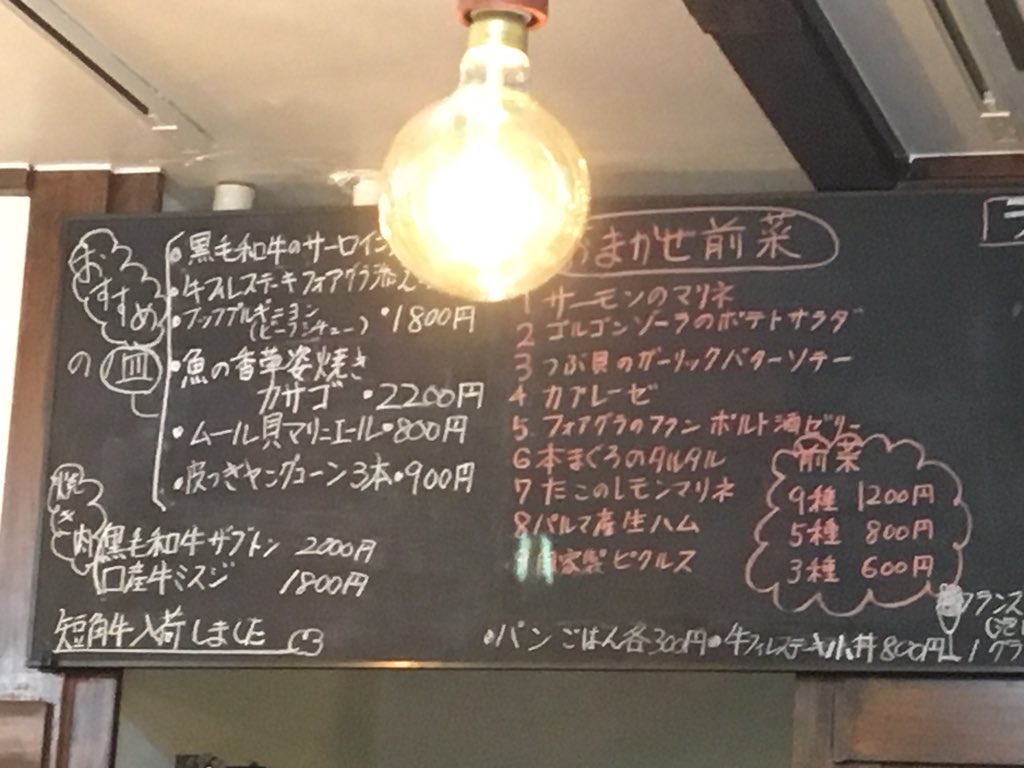 おすすめ
の皿
・黒毛和牛のサーロイン
・牛フィレステーキフォアグラ添え
・ブッフブルギニョン
(ビーフシチュー)・1800円
・魚の香草姿焼き
カサゴ・2200円
・ムール貝マリニエール・800円
・皮つきヤングコーン3本・900円
焼き肉
黒毛和牛ザブトン 2000円
国産牛ミスジ 1800円
短角牛入荷しました
おまかせ前菜
1 サーモンのマリネ
2 ゴルゴンゾーラのポテトサラダ
3 つぶ貝のガーリックバターソテー
4 カプレーゼ
5 フォアグラのフラン ポルト酒ゼリー
6 本まぐろのタルタル
7 たこのレモンマリネ
8 パルマ産生ハム
自家製ピクルス
前菜
9種 1200円
5種 800円
3種 600円
・パン ごはん各300円・牛フィレステーキ小丼800円
フランス